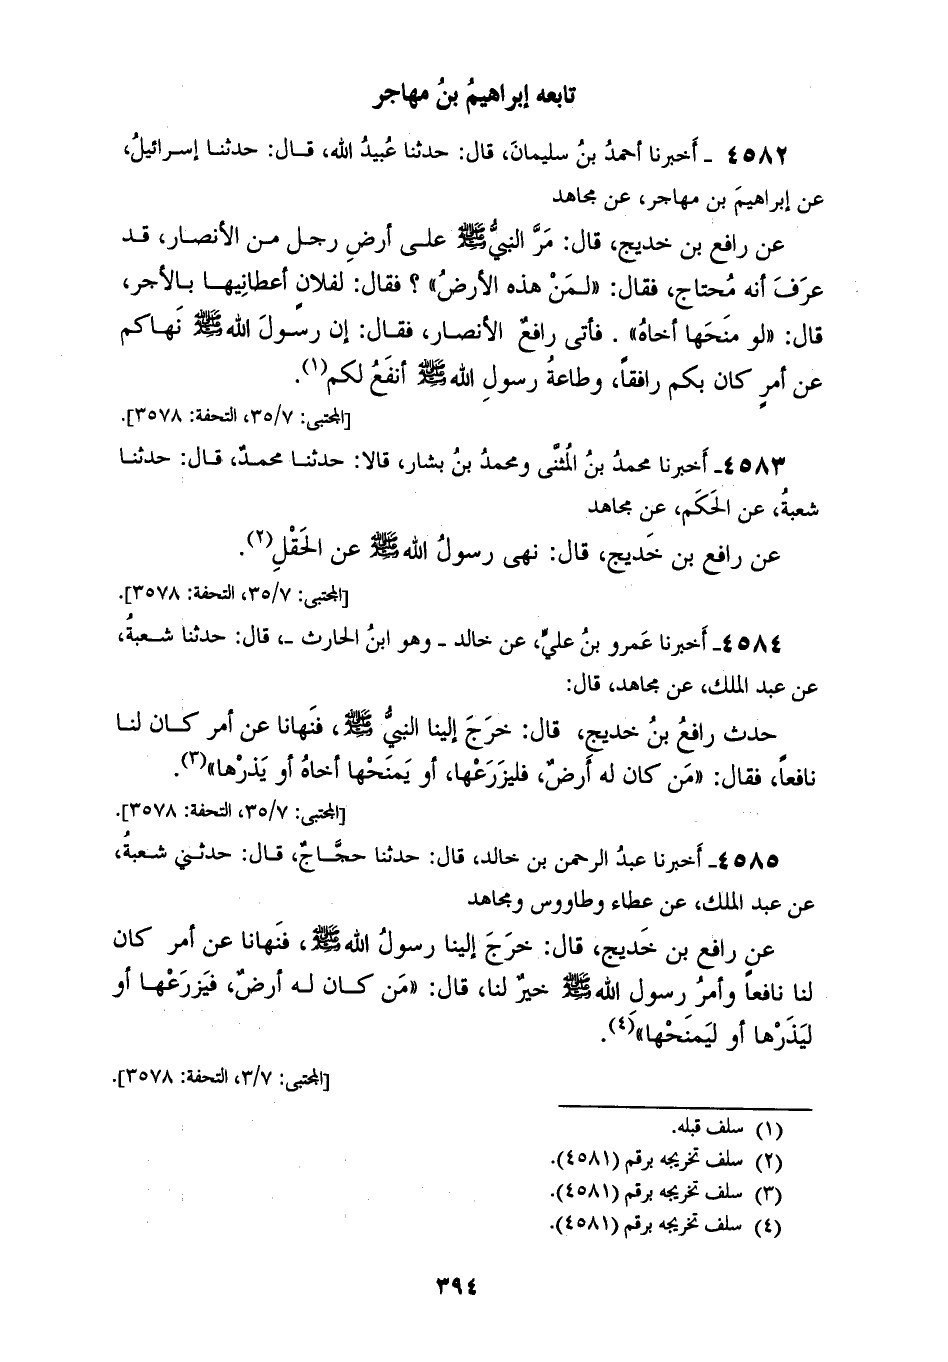 تابعه إبراهيمُ بنُ مهاجر
٤٥٨٢ ـ أَخبرنا أحمدُ بنُ سليمانَ، قال: حدثنا عُبيدُ الله، قـال: حدثنـا إسـرائيلُ،
عن إبراهيمَ بن مهاجر، عن مجاهد
عن رافع بن خديج، قال: مَرَّ النبيُّ ﷺ علـى أرضِ رجـل مـن الأنصـار، قـد
عرَفَ أنه مُحتاج، فقال: «لـمَنْ هذه الأرضُ» ؟ فقال: لفلانٍ أعطانِيهـا بـالأجر،
قال: «لو منَحَها أخاهُ» . فأتى رافعٌ الأنصار، فقـال: إن رسـولَ الله ﷺ نَهـاكم
عن أمرٍ كان بكم رافقاً، وطاعةُ رسولِ الله ﷺ أنفَعُ لكم(١).
[المجتبى: ٣٥/٧، التحفة: ٣٥٧٨].
٤٥٨٣ـ أَخبرنا محمدُ بنُ الُمثنَّى ومحمدُ بنُ بشار، قالا: حدثنـا محمدٌ، قـال: حدثنـا
شعبةُ، عن الحَكَم، عن مجاهد
عن رافع بن خَديج، قال: نهى رسولُ الله ﷺ عن الحَقْلِ(٢).
[المجتبى: ٣٥/٧، التحفة: ٣٥٧٨].
٤٥٨٤ـ أَخبرنا عَمرو بنُ عليٍّ، عن خالد ـ وهو ابنُ الحارث ـ، قال: حدثنا شـعبةُ،
عن عبد الملك، عن مجاهد، قال:
حدث رافعُ بنُ خديج، قال: خرَجَ إلينا النبيُّ ﷺ، فنَهانا عن أمر كـان لنـا
نافعاً، فقال: «مَن كان له أَرضٌ، فليزَرَعْها، أو يَمنَحْها أخاهُ أو يَذرْها»(٣).
[المجتبى: ٣٥/٧، التحفة: ٣٥٧٨].
٤٥٨٥ـ أَخبرنا عبدُ الرحمن بن خالد، قال: حدثنا حجَّـاجٌ، قـال: حدثـني شـعبةُ،
عن عبد الملك، عن عطاء وطاووس ومجاهد
عن رافع بن خَديج، قال: خرَجَ إلينا رسولُ الله ﷺ، فنَهانا عن أمر كان
لنا نافعاً وأمرُ رسول الله ﷺ خيرٌ لنا، قال: «مَن كـان لـه أرضٌ، فيَزرَعْهـا أو
ليَذَرْها أو ليَمنَحْها»(٤).
[المجتبى: ٣/٧، التحفة: ٣٥٧٨].
(١) سلف قبله.
(٢) سلف تخريجه برقم (٤٥٨١).
(٣) سلف تخريجه برقم (٤٥٨١).
(٤) سلف تخريجه برقم (٤٥٨١).
٣٩٤